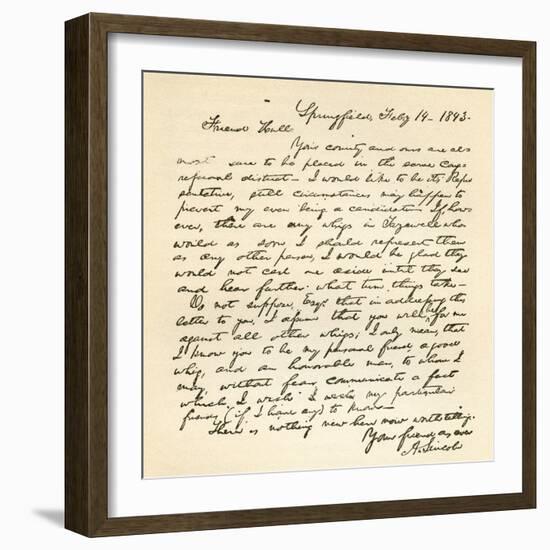 Springfield, Feby 14 - 1843.
Friend Hull
Your county and ours are al-
most sure to be placed in the same Cong-
ressional district - I would like to be its Repre
sentative, still circumstances may happen to
prevent my even being a candidate - If, how-
ever, there are any whigs in Tazewell who
would as soon I should represent them
as any other person, I would be glad they
would not cast me aside until they see
and hear farther what turn things take -
Do not suppose, Esqr. that in addressing this
letter to you, I assume that you will be for me
against all other whigs; I only mean, that
I know you to be my personal friend, a good
whig, and an honorable man, to whom I
may, without fear, communicate a fact
which I wish I wish my particular
friends (if I have any) to know -
There is nothing new here now worth telling.
Your friend as ever
A. Lincoln